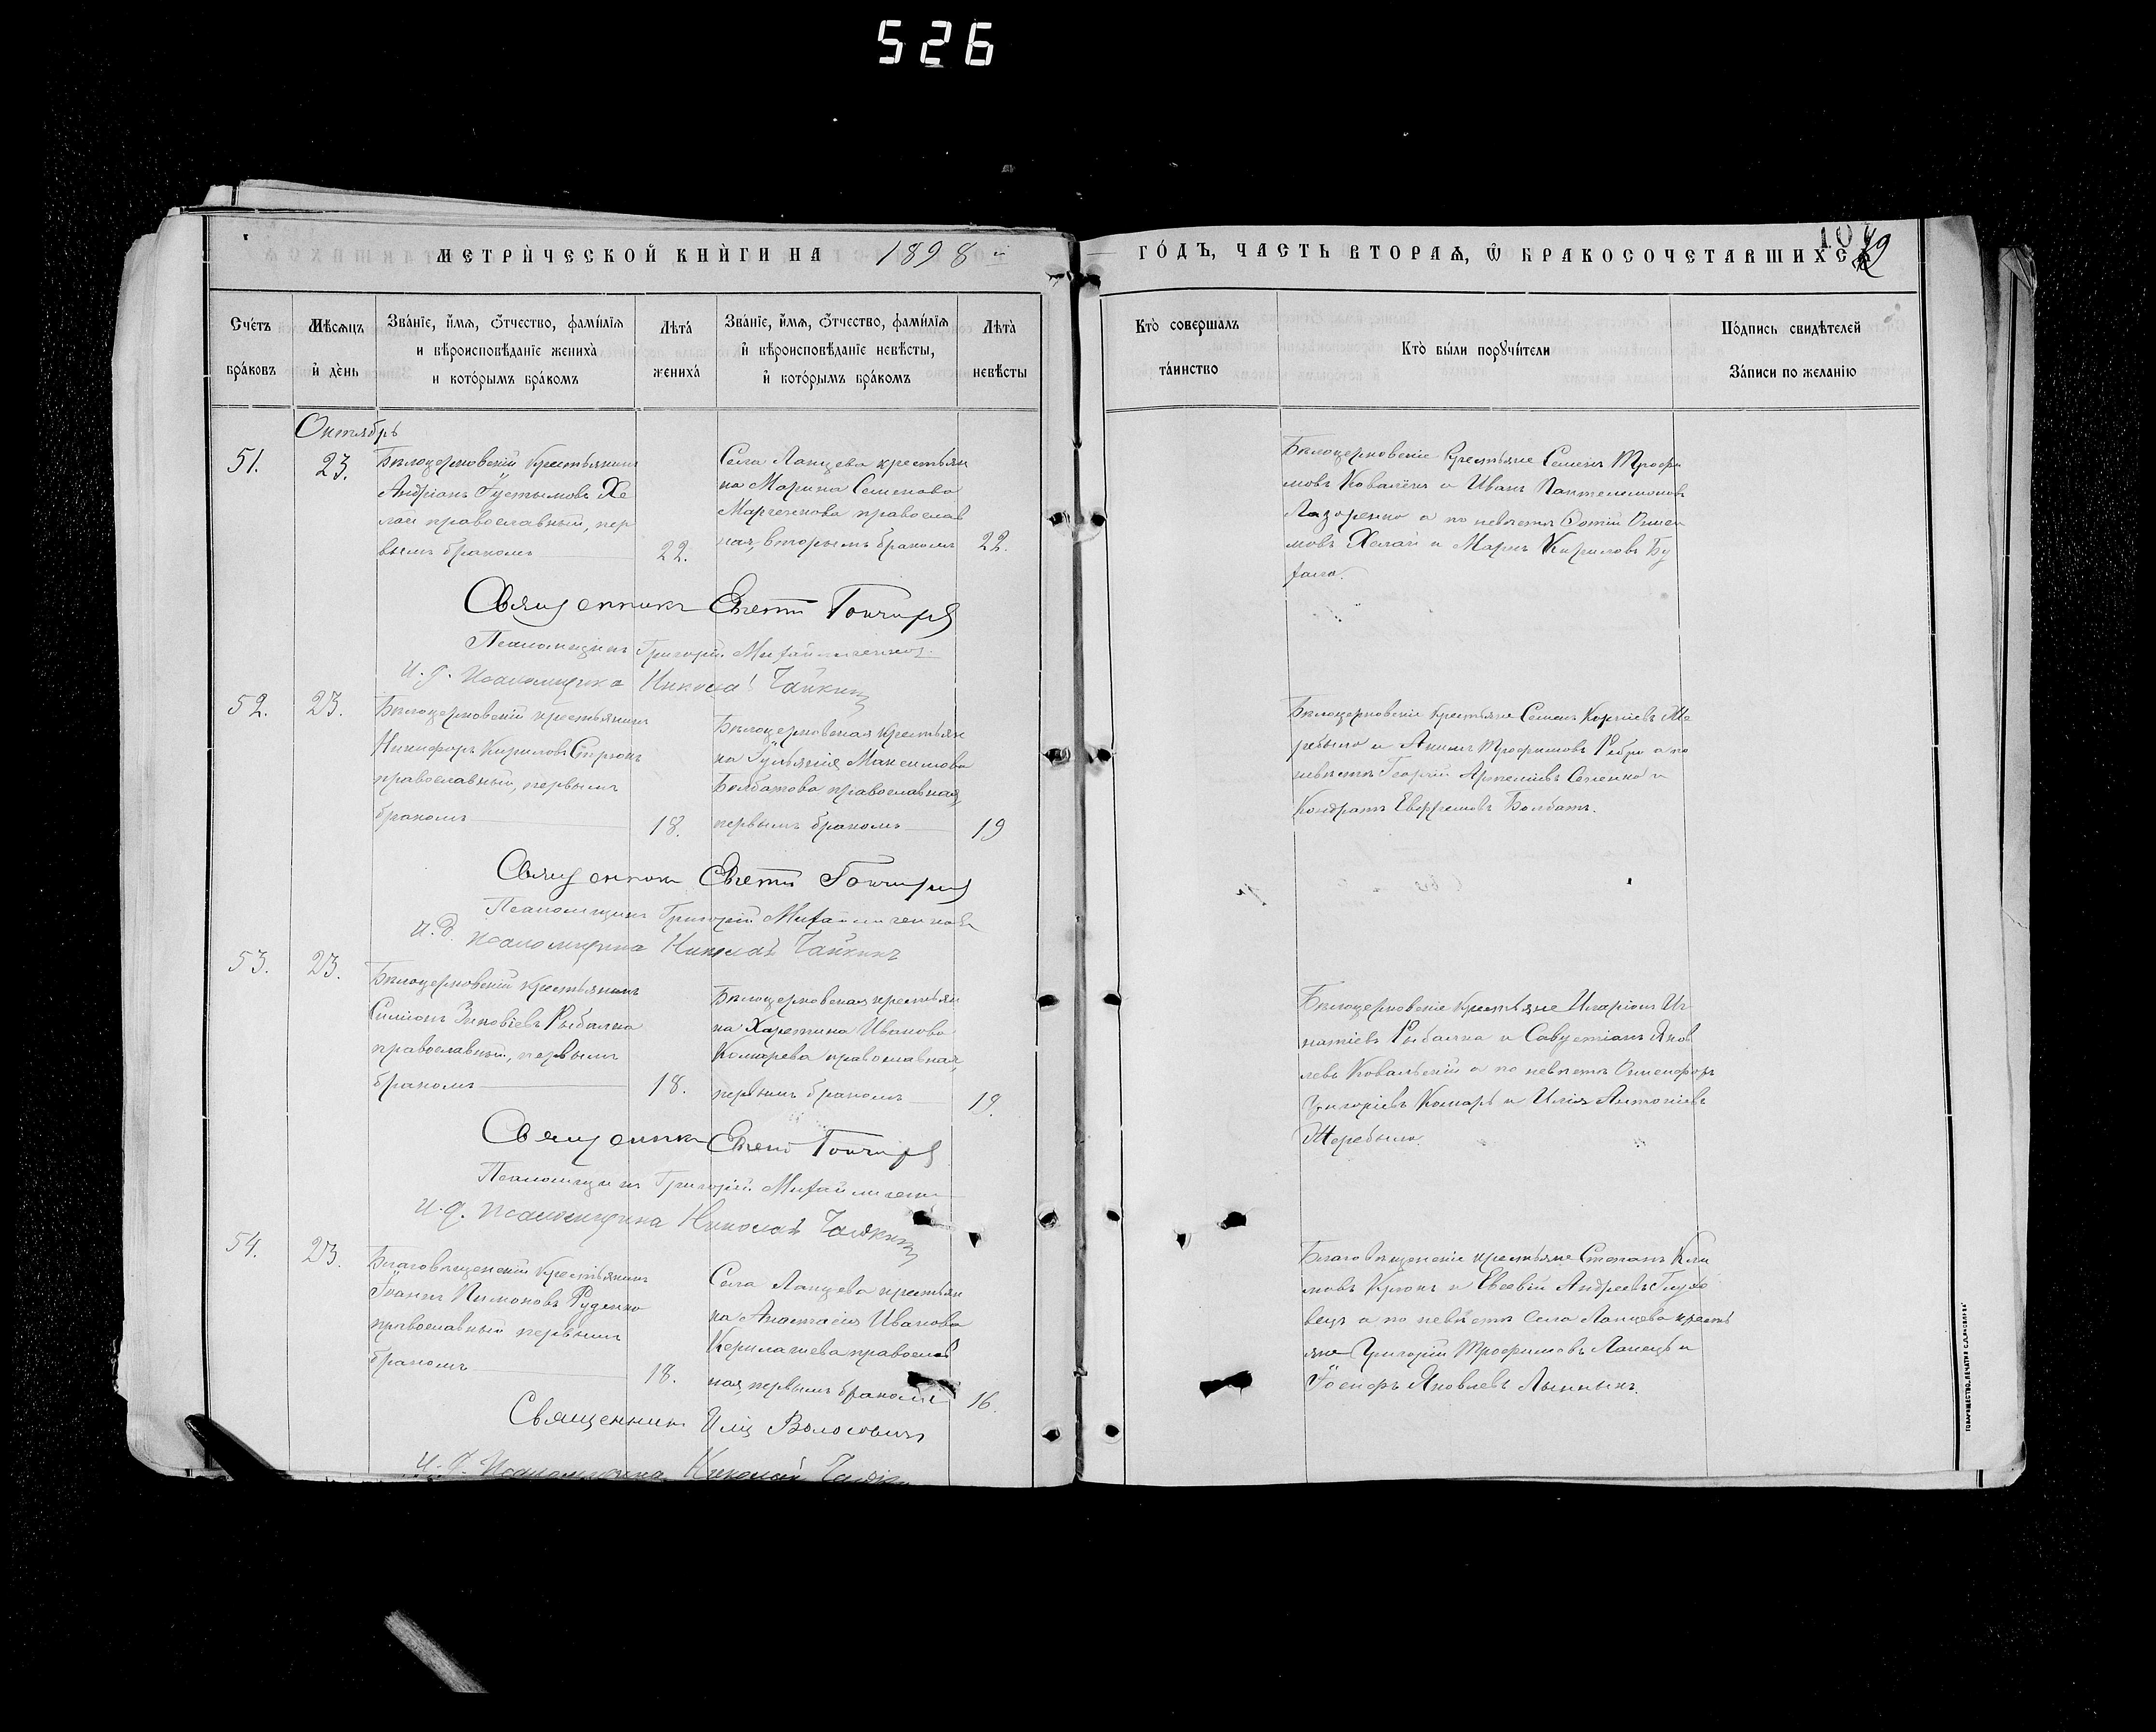 526
МЕТРИ́ЧЕСКОЙ КНИ́ГИ НА 1898 й
ГО́ДЪ, ЧАСТЬ ВТОРАѦ, Ѡ БРАКОСОЧЕТАВШИХСѦ
107
Сче́тъ бра́ковъ
Мѣ́сѧцъ и҆ де́нь
Зва́нїе, и҆́мѧ, ѻ҆́тчество, фами́лїѧ
и вѣроисповѣ́данїе жениха̀
и кото́рымъ бра́комъ
Лѣта̀ жениха́
Зва́нїе, и҆́мѧ, ѻ҆́тчество, фами́лїѧ
и҆ вѣроисповѣ́данїе невѣ́сты,
и҆ кото́рымъ бра́комъ
Лѣта̀ невѣ́сты
Кто̀ соверша́лъ та́инство
Кто̀ бы́ли порꙋчи́тели
По́дпись свидѣ́телей
За́писи по жела́нїю
Октябрь
51.
23.
Бѣлоцерковскій крестьянинъ
Андріанъ Іустымовъ Хе
лай православный, пер
вымъ бракомъ
22.
Села Ланцева крестьян
ка Марина Семенова
Марченкова православ
ная, вторымъ бракомъ
22.
Бѣлоцерковскіе крестьяне Семенъ Трофи
мовъ Ковалеки и Иванъ Пантелеимоновъ
Лазоренко а по невѣстѣ Фотій
мовъ Хелай и Маркъ Кириловъ Бу
Священникъ Гончаровъ
Псаломщикъ Григорій Михайличенковъ
И. д. псаломщика Николай Чайкинъ
52.
23.
Бѣлоцерковскій крестьянинъ
Никифоръ Кириловъ
православный, первымъ
бракомъ
18.
Бѣлоцерковская крестьян
ка Іульянія Максимова
Болбатова православная,
первымъ бракомъ
19
Бѣлоцерковскіе крестьяне Семенъ Корніевъ Же
ребыло и Акимъ Трофимовъ а по
невѣстѣ Георгій и
Кондратъ Евфремовъ Болбатъ.
Священникъ Гончаровъ
Псаломщикъ Григорій Михайличенковъ
И. д. псаломщика Николай Чайкинъ
53.
23.
Бѣлоцерковскій крестьянинъ
Симіонъ Зиновіевъ Рыбалка
православный, первымъ
бракомъ
18.
Бѣлоцерковская крестьян
ка Харитина Иванова
Комарева православная,
первымъ бракомъ
19.
Бѣлоцерковскіе крестьяне Иларіонъ Иг
натіевъ Рыбалка и Савустіанъ Яков
левъ Ковальскій а по невѣстѣ Онисифоръ
Григоріевъ Комаръ и Илія Антоніевъ
Жеребыло.
Священникъ Гончаровъ
Псаломщикъ Григорій Михайличенко
И. д. псаломщика Николай Чайкинъ
54.
23.
Благовѣщенскій крестьянинъ
Іоаннъ Пимоновъ Руденко
православный первымъ
бракомъ
18.
Села Ланцева крестьян
ка Анастасія Иванова
православ
ная, первымъ бракомъ
16.
Благовѣщенскіе крестьяне Степанъ Кли
мовъ Крюкъ и Евсевій Андреевъ Глухо
вецъ а по невѣстѣ Села Ланцева кресть
яне Григорій Трофимовъ Ланецъ и
Іосифъ Яковлевъ
Священникъ Илія Волосовичъ
И. д. Псаломщика Николай Чайкинъ